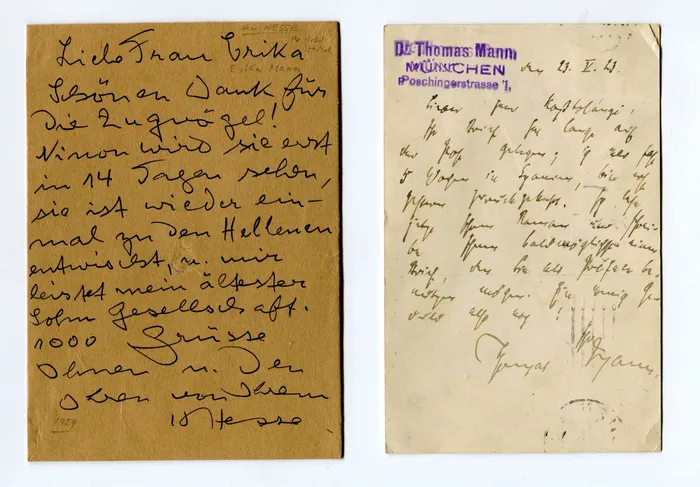 Liebe Frau Erika
ERIKA MANN
Schönen Dank für
die Zugvögel!
Ninon wird sie erst
in 14 Tagen sehen,
sie ist wieder ein-
mal zu den Hellenen
entwischt, u. mir
leistet mein ältester
Sohn Gesellschaft.
1000 Grüsse
Ihnen u. den
Ihren von Ihrem
H Hesse
Dr. Thomas Mann
MÜNCHEN
Poschingerstrasse 1,
den 23. V. 23.
Ihr Brief hat lange auf
der Post gelegen; ich war fast
5 Wochen in Spanien, bin erst
gestern zurückgekehrt. Ich
jetzt Ihren Roman und
Ihnen baldmöglichst einen
Brief, den Sie als
mögen. Ein wenig Ge-
duld also noch!
Ihr
Thomas Mann.